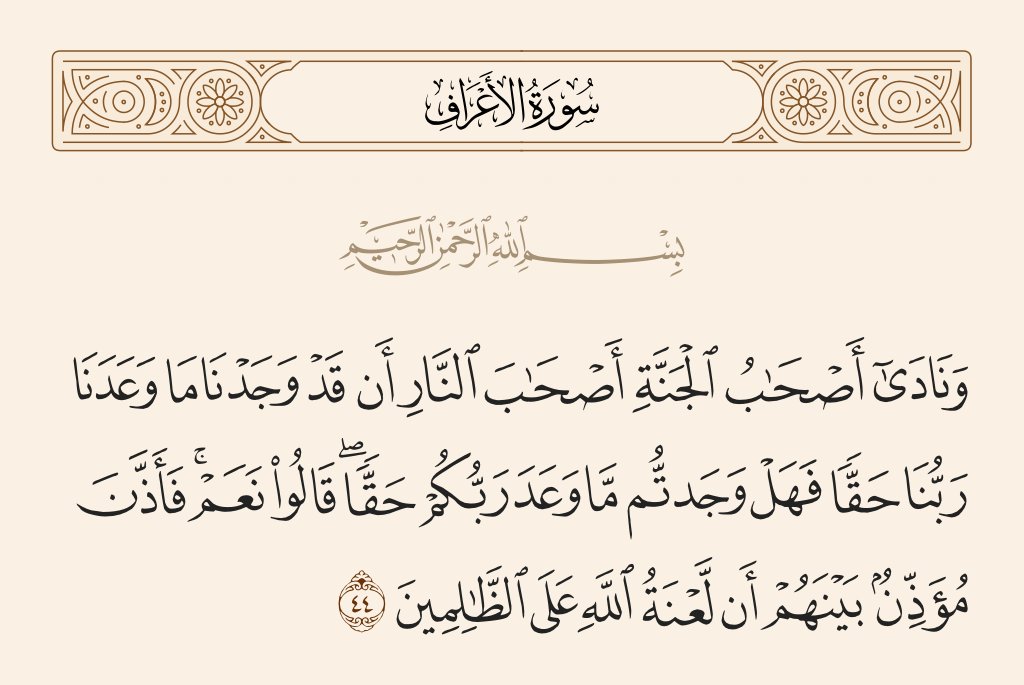 سُورَةُ الأَعْرَافِ
بِسْمِ ٱللَّهِ ٱلرَّحْمَٰنِ ٱلرَّحِيمِ
وَنَادَىٰٓ أَصْحَٰبُ ٱلْجَنَّةِ أَصْحَٰبَ ٱلنَّارِ أَن قَدْ وَجَدْنَا مَا وَعَدَنَا
رَبُّنَا حَقًّا فَهَلْ وَجَدتُّم مَّا وَعَدَ رَبُّكُمْ حَقًّا ۖ قَالُوا۟ نَعَمْ ۚ فَأَذَّنَ
مُؤَذِّنٌۢ بَيْنَهُمْ أَن لَّعْنَةُ ٱللَّهِ عَلَى ٱلظَّٰلِمِينَ ٤٤